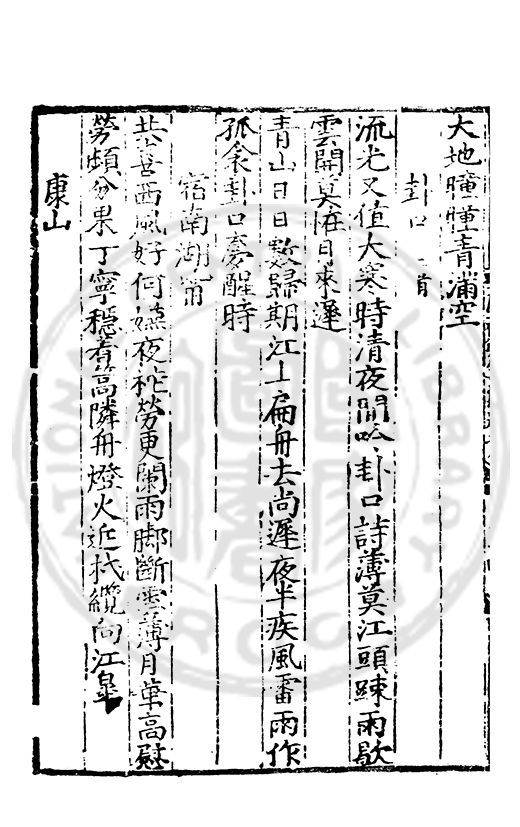 大地曈曈青滿空
卦口二首
流光又值大寒時清夜閒吟卦口詩薄莫江頭踈雨歇
雲開莫恠月來遲
青山日日數歸期江上扁舟去尚遲夜半疾風雷雨作
孤衾卦口夢醒時
宿南湖甯
共喜西風好何嫌夜柁勞更闌雨脚斷雲薄月華高慰
勞頻分果丁寧穩着篙隣舟燈火近杙纜向江臯
康山